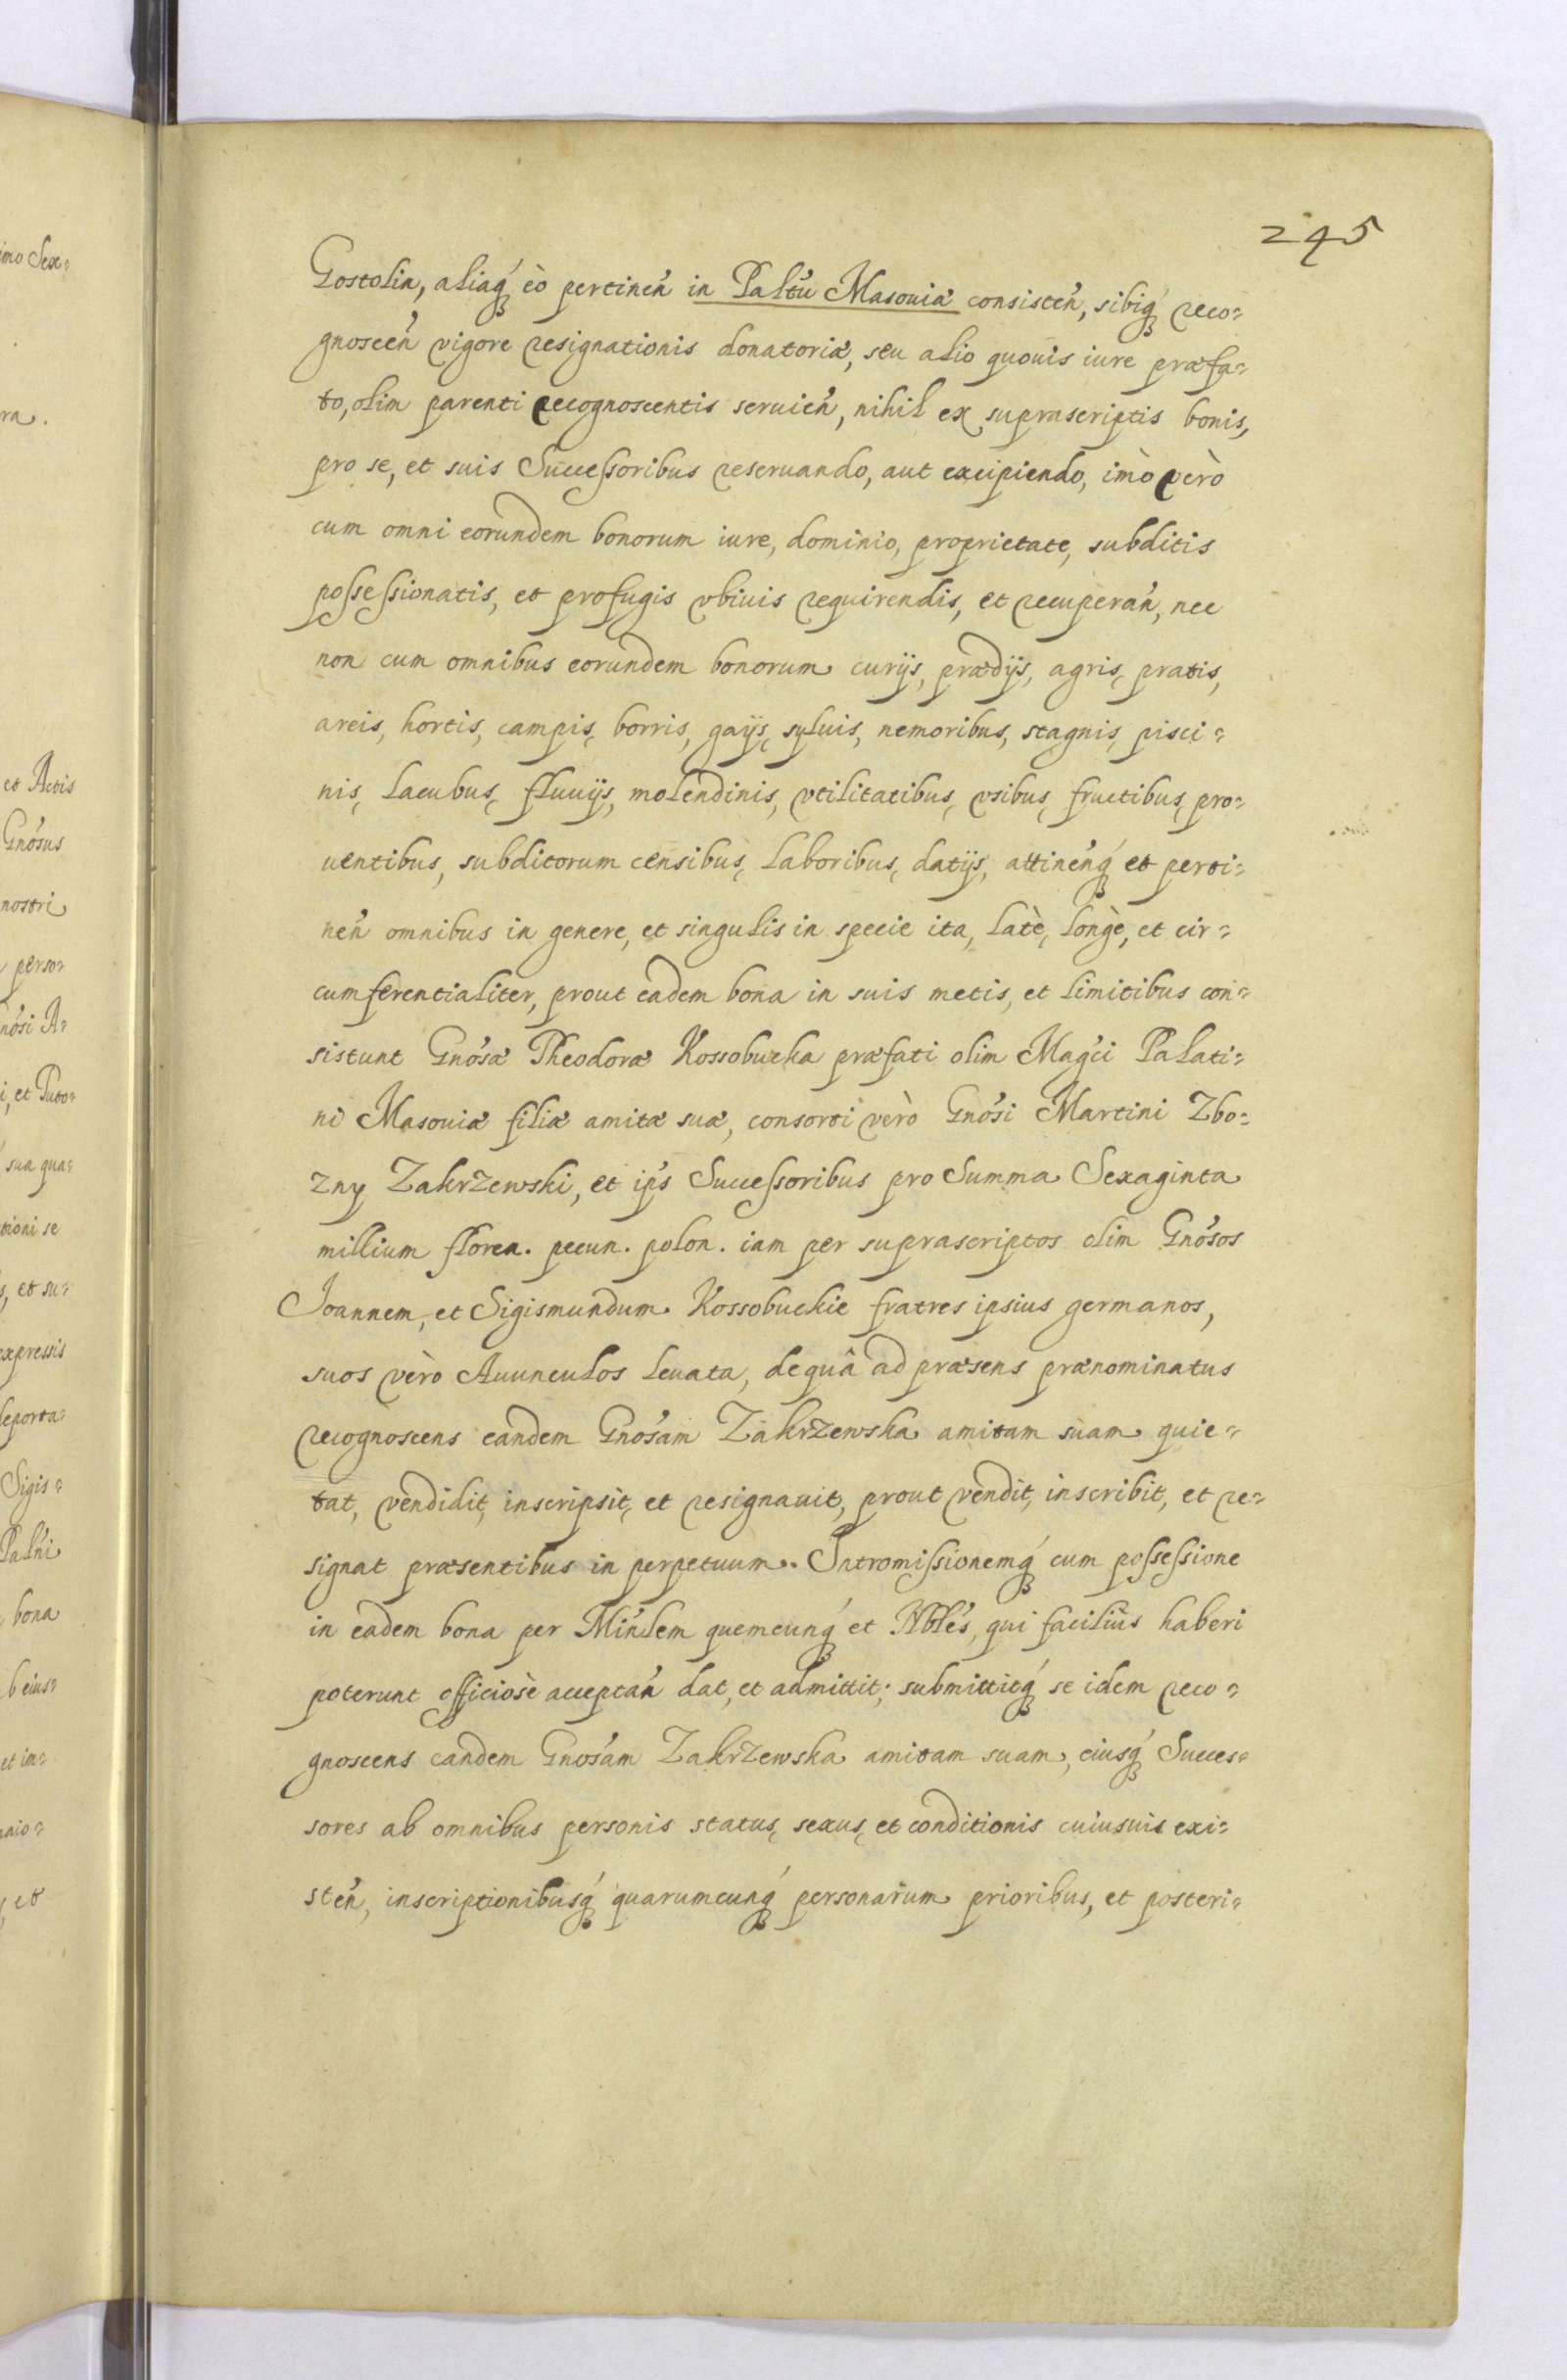 245
Gostolin, aliaq́ꝫ eò pertineń in Palt́u Masouiæ consisteń, sibiq́ꝫ reco⸗
gnosceń vigore resignationis donatoriæ, seu alio quouis iure præfa⸗
to, olim parenti recognoscentis seruień, nihil ex suprascriptis bonis,
pro se, et suis Succeſsoribus reseruando, aut excipiendo, imò verò
cum omni eorundem bonorum iure, dominio, proprietate, subditis
poſseſsionatis, et profugis vbiuis requirendis, et recuperań, nec
non cum omnibus eorundem bonorum curijs, prædijs, agris, pratis,
areis, hortis, campis, borris, gaijs, syluis, nemoribus, stagnis, pisci⸗
nis, lacubus, fluuijs, molendinis, vtilitatibus, vsibus, fructibus, pro⸗
uentibus, subditorum censibus, laboribus, datijs, attineńq́ꝫ et perti⸗
neń omnibus in genere, et singulis in specie ita, latè, longè, et cir⸗
cumferentialiter, prout eadem bona in suis metis, et limitibus con⸗
sistunt Gnósæ Theodoræ Kossobucka præfati olim Maǵci Palati⸗
ni Masouiæ filiæ amitæ suæ, consorti verò Gnósi Martini Zbo⸗
zny Zakrzewski, et iṕs Succeſsoribus pro Summa Sexaginta
millium floren. pecun. polon. iam per suprascriptos olim Gnósos
Joannem, et Sigismundum Kossobuckie fratres ipsius germanos,
suos verò Auunculos leuata, de quâ ad præsens prænominatus
recognoscens eandem Gnósam Zakrzewska amitam suam quie⸗
tat, vendidit, inscripsit, et resignauit, prout vendit, inscribit, et re⸗
signat præsentibus in perpetuum. Intromiſsionemq́ꝫ cum poſseſsione
in eadem bona per Mińlem quemcunq́ꝫ et Nbĺes, qui faciliùs haberi
poterunt officiosè acceptań dat, et admittit; submittitq́ꝫ se idem reco⸗
gnoscens eandem Gnosám Zakrzewska amitam suam, eiusq́ꝫ Succes⸗
sores ab omnibus personis status, sexus, et conditionis cuiusuis exi⸗
steń, inscriptionibusq́ꝫ quarumcunq́ꝫ personarum prioribus, et posteri⸗